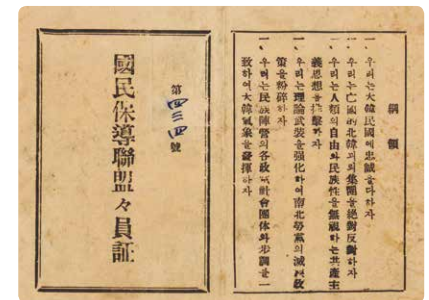 綱領
一、우리는大韓民國에忠誠을다하자
一、우리는亡國的北韓괴뢰集團을絶對反對하자
一、우리는人類의自由와民族性을無視하는共產主
義思想을排擊하자
一、우리는理論武裝을强化하여南北勞黨의滅族政
策을粉碎하자
一、우리는民族陣營의各政黨社會團体와步調를一
致하여大韓氣象을發揮하자
第四三四號
國民保導聯盟々員証